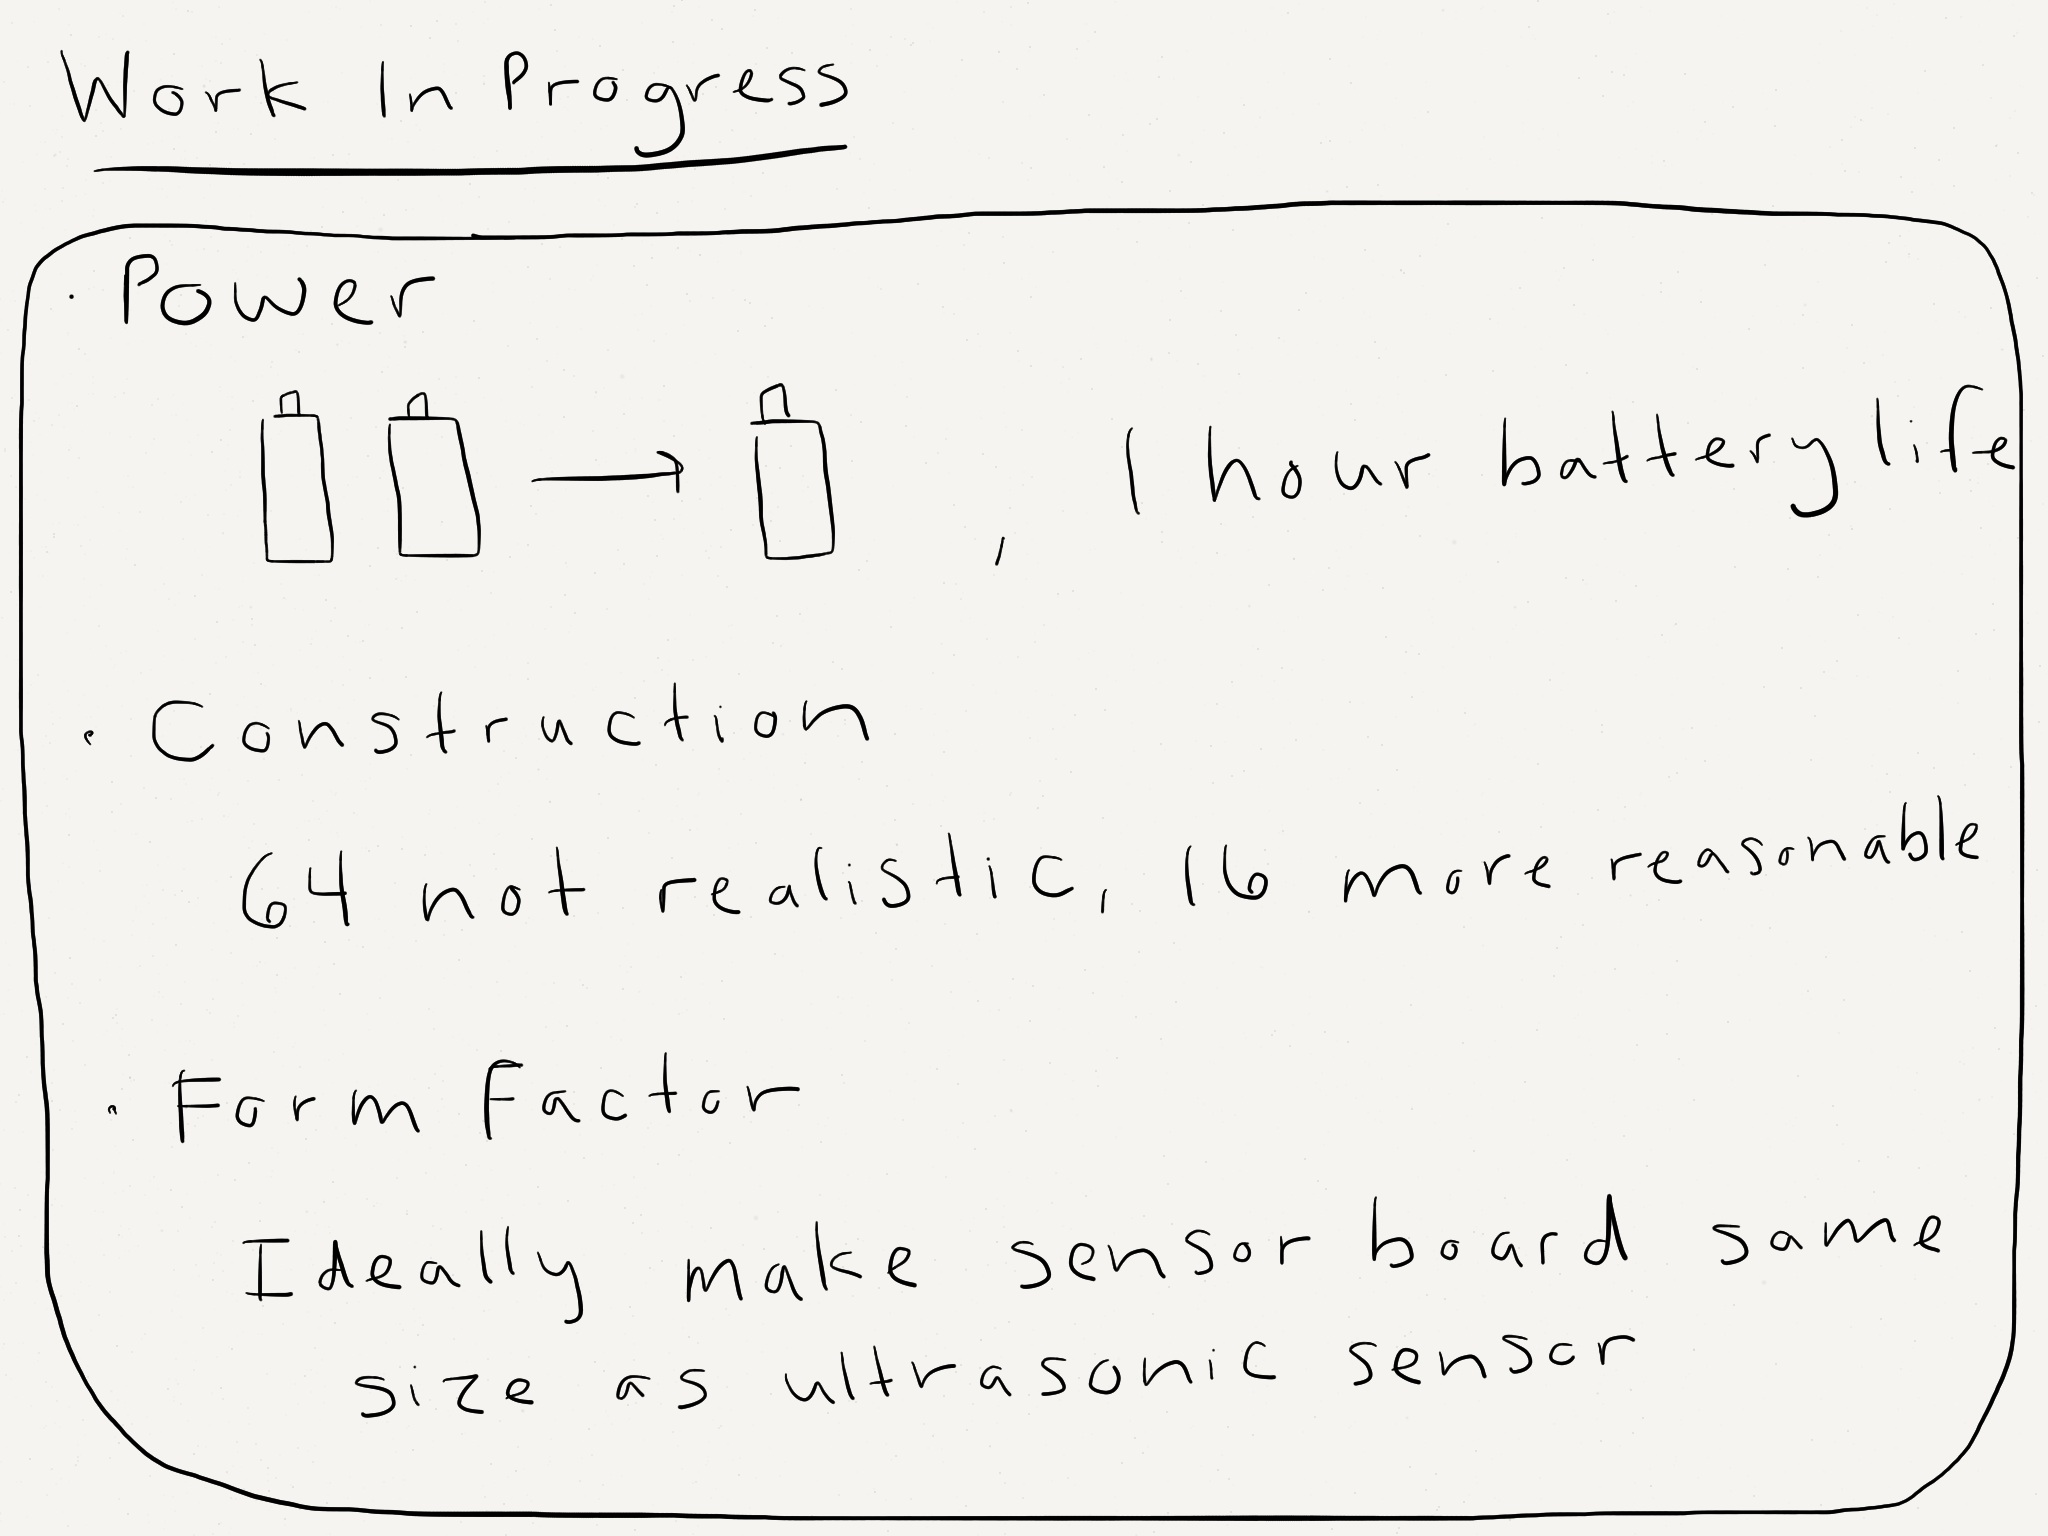 Work In Progress
· Power
, 1 hour battery life
· Construction
64 not realistic, 16 more reasonable
· Form Factor
Ideally make sensor board same
size as ultrasonic sensor